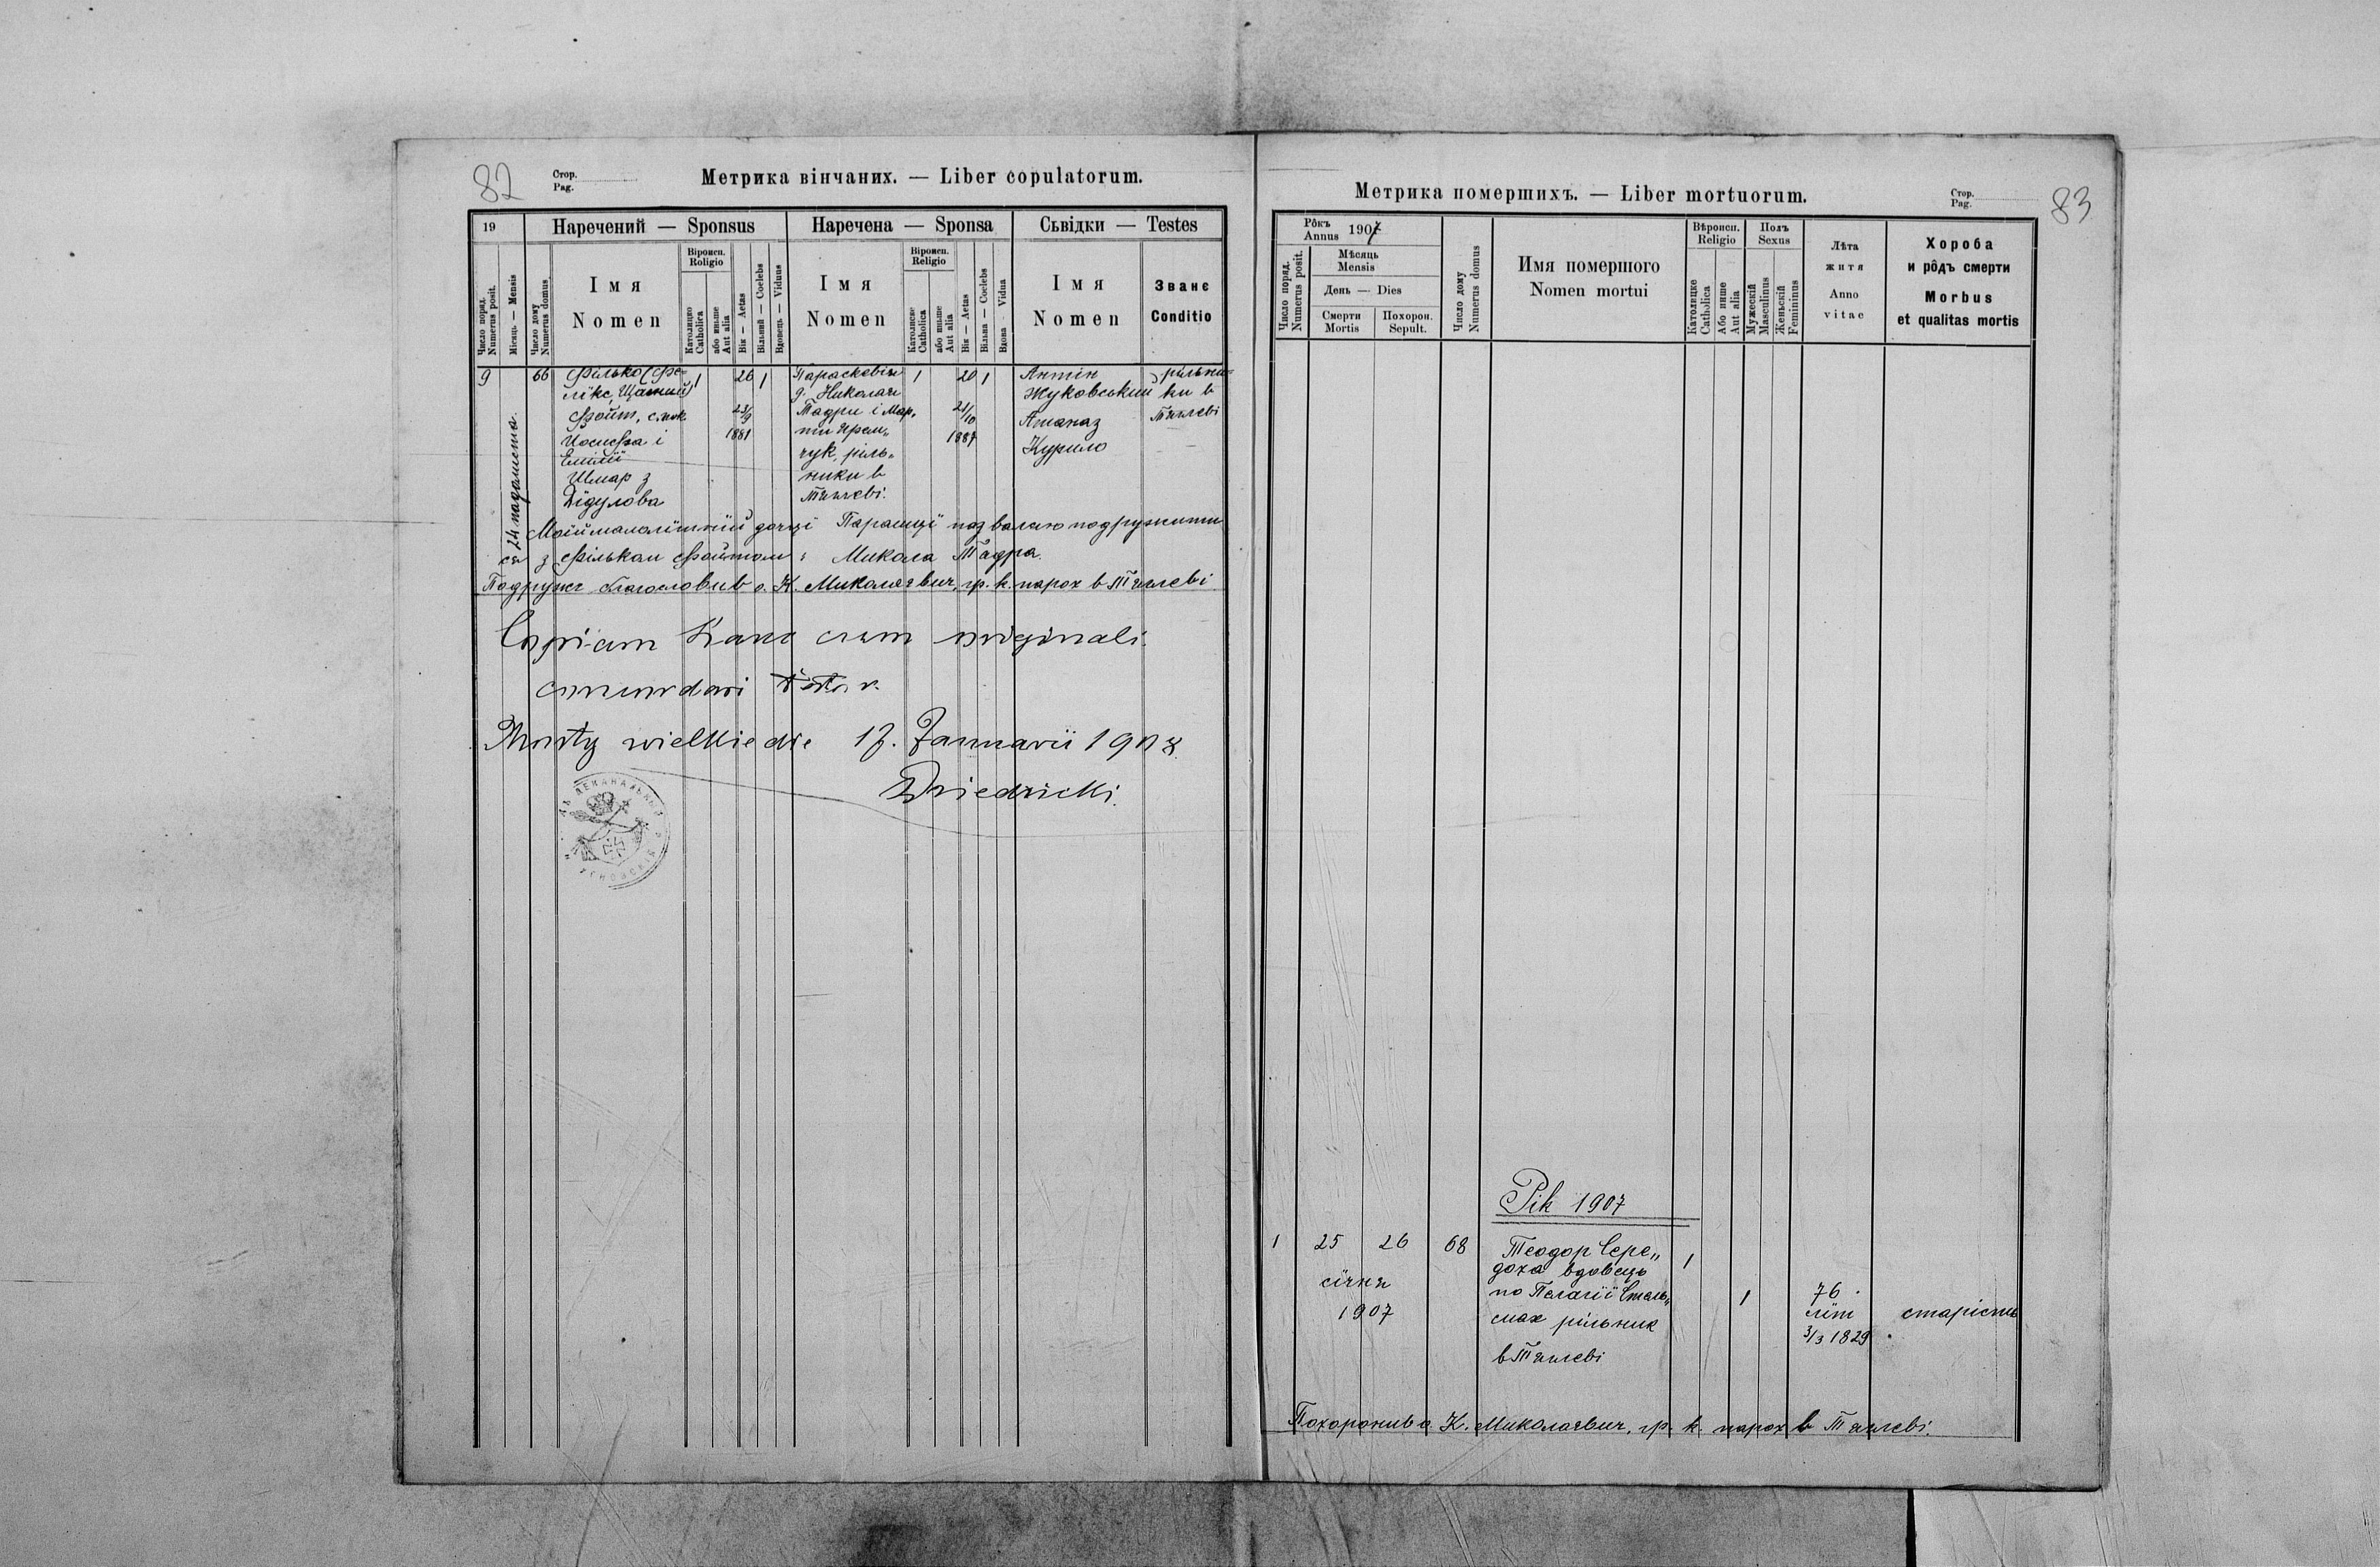 82
Стор.
Pag.
Метрика вінчаних. — Liber copulatorum.
19
Наречений — Sponsus
Наречена — Sponsa
Сьвідки — Testes
Число поряд.
Numerus posit.
Місяць — Mensis
Число дому
Numerus domus
Імя
Nomen
Віроисп.
Religio
Католицко
Catholica
або иньше
Aut alia
Вік — Aetas
Вільний — Coelebs
Вдовець — Viduus
Імя
Nomen
Віроисп.
Religio
Католицке
Catholica
або иньше
Aut alia
Вік — Aetas
Вільна — Coelebs
Вдова Vidua
Імя
Nomen
Званє
Conditio
9
24 падолиста
66
Філько (Фе-
лікс, Щасний)
Фойт, с.
Иосифа і
Емілії
Шмар з
Дідулова
1
26
23/9
1881
1
Параскевія
д. Николая
Тадри і Мар,
ти Ярем„
чук, ріль„
ники в
Тяглеві.
1
20
21/10
1887
1
Антін
Жуковський
Атаназ
Курило
рільни=
ки в
Тяглеві
Моїй малолітній дочці Параищі позваляю подружити
ся з Фільком Фойтом: Микола Тадра.
Подруже благословив о. К. Миколаєвич, гр. к. парох в Тяглеві
Copiam hanc cum originali
concordari testor.
Mosty wielkie die 17. Januarii 1908.
Dziedzicki.
83
Стор.
Pag.
Метрика помершихъ. — Liber mortuorum.
Рôкъ
Annus 1907
Число поряд.
Numerus posit.
Мѣсяць
Mensis
День — Dies
Смерти
Mortis
Похорон.
Sepult.
Число дому
Numerus domus
Имя помершого
Nomen mortui
Вѣроисп.
Religio
Католицке
Catholica
Або инше
Aut alia
Полъ
Sexus
Мужескій
Masculinus
Женьскій
Femininus
Лѣта
житя
Anno
vitae
Хороба
и рôдъ смерти
Morbus
et qualitas mortis
Рік 1907
1
25
26
січня
1907
68
Теодор Сере„
доха вдовець
по Пелагії Сталь„
мах рільник
в Тяглеві
1
1
76.
літ
3/3 1829
старість
Похоронив о. К. Миколаєвич, гр. к. парох в Тяглеві.